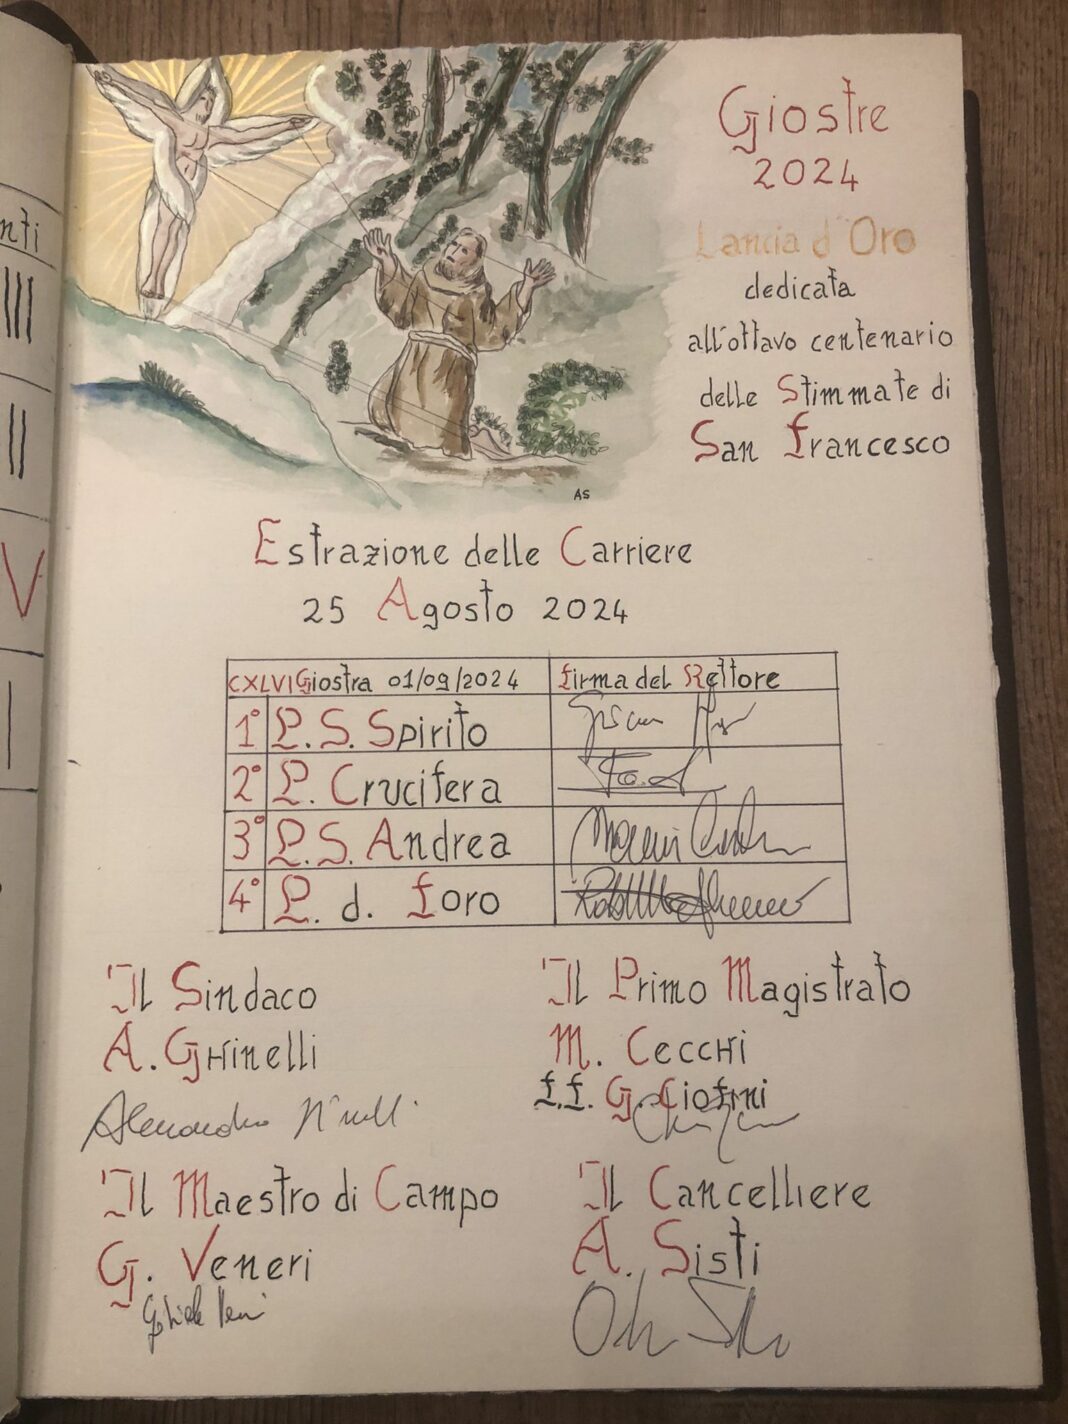 nti
V
Giostre
2024
Lancia d'Oro
dedicata
all'ottavo centenario
delle Stimmate di
San Francesco
AS
Estrazione delle Carriere
25 Agosto 2024
CXLVI Giostra 01/09/2024 Firma del Rettore
1° P. S. Spirito
2° P. Crucifera
3° P. S. Andrea
4° P. d. Foro
Il Sindaco
A. Ghinelli
Il Primo Magistrato
M. Cecchi
f.f. G. Ciofini
Il Maestro di Campo
G. Veneri
Il Cancelliere
A. Sisti